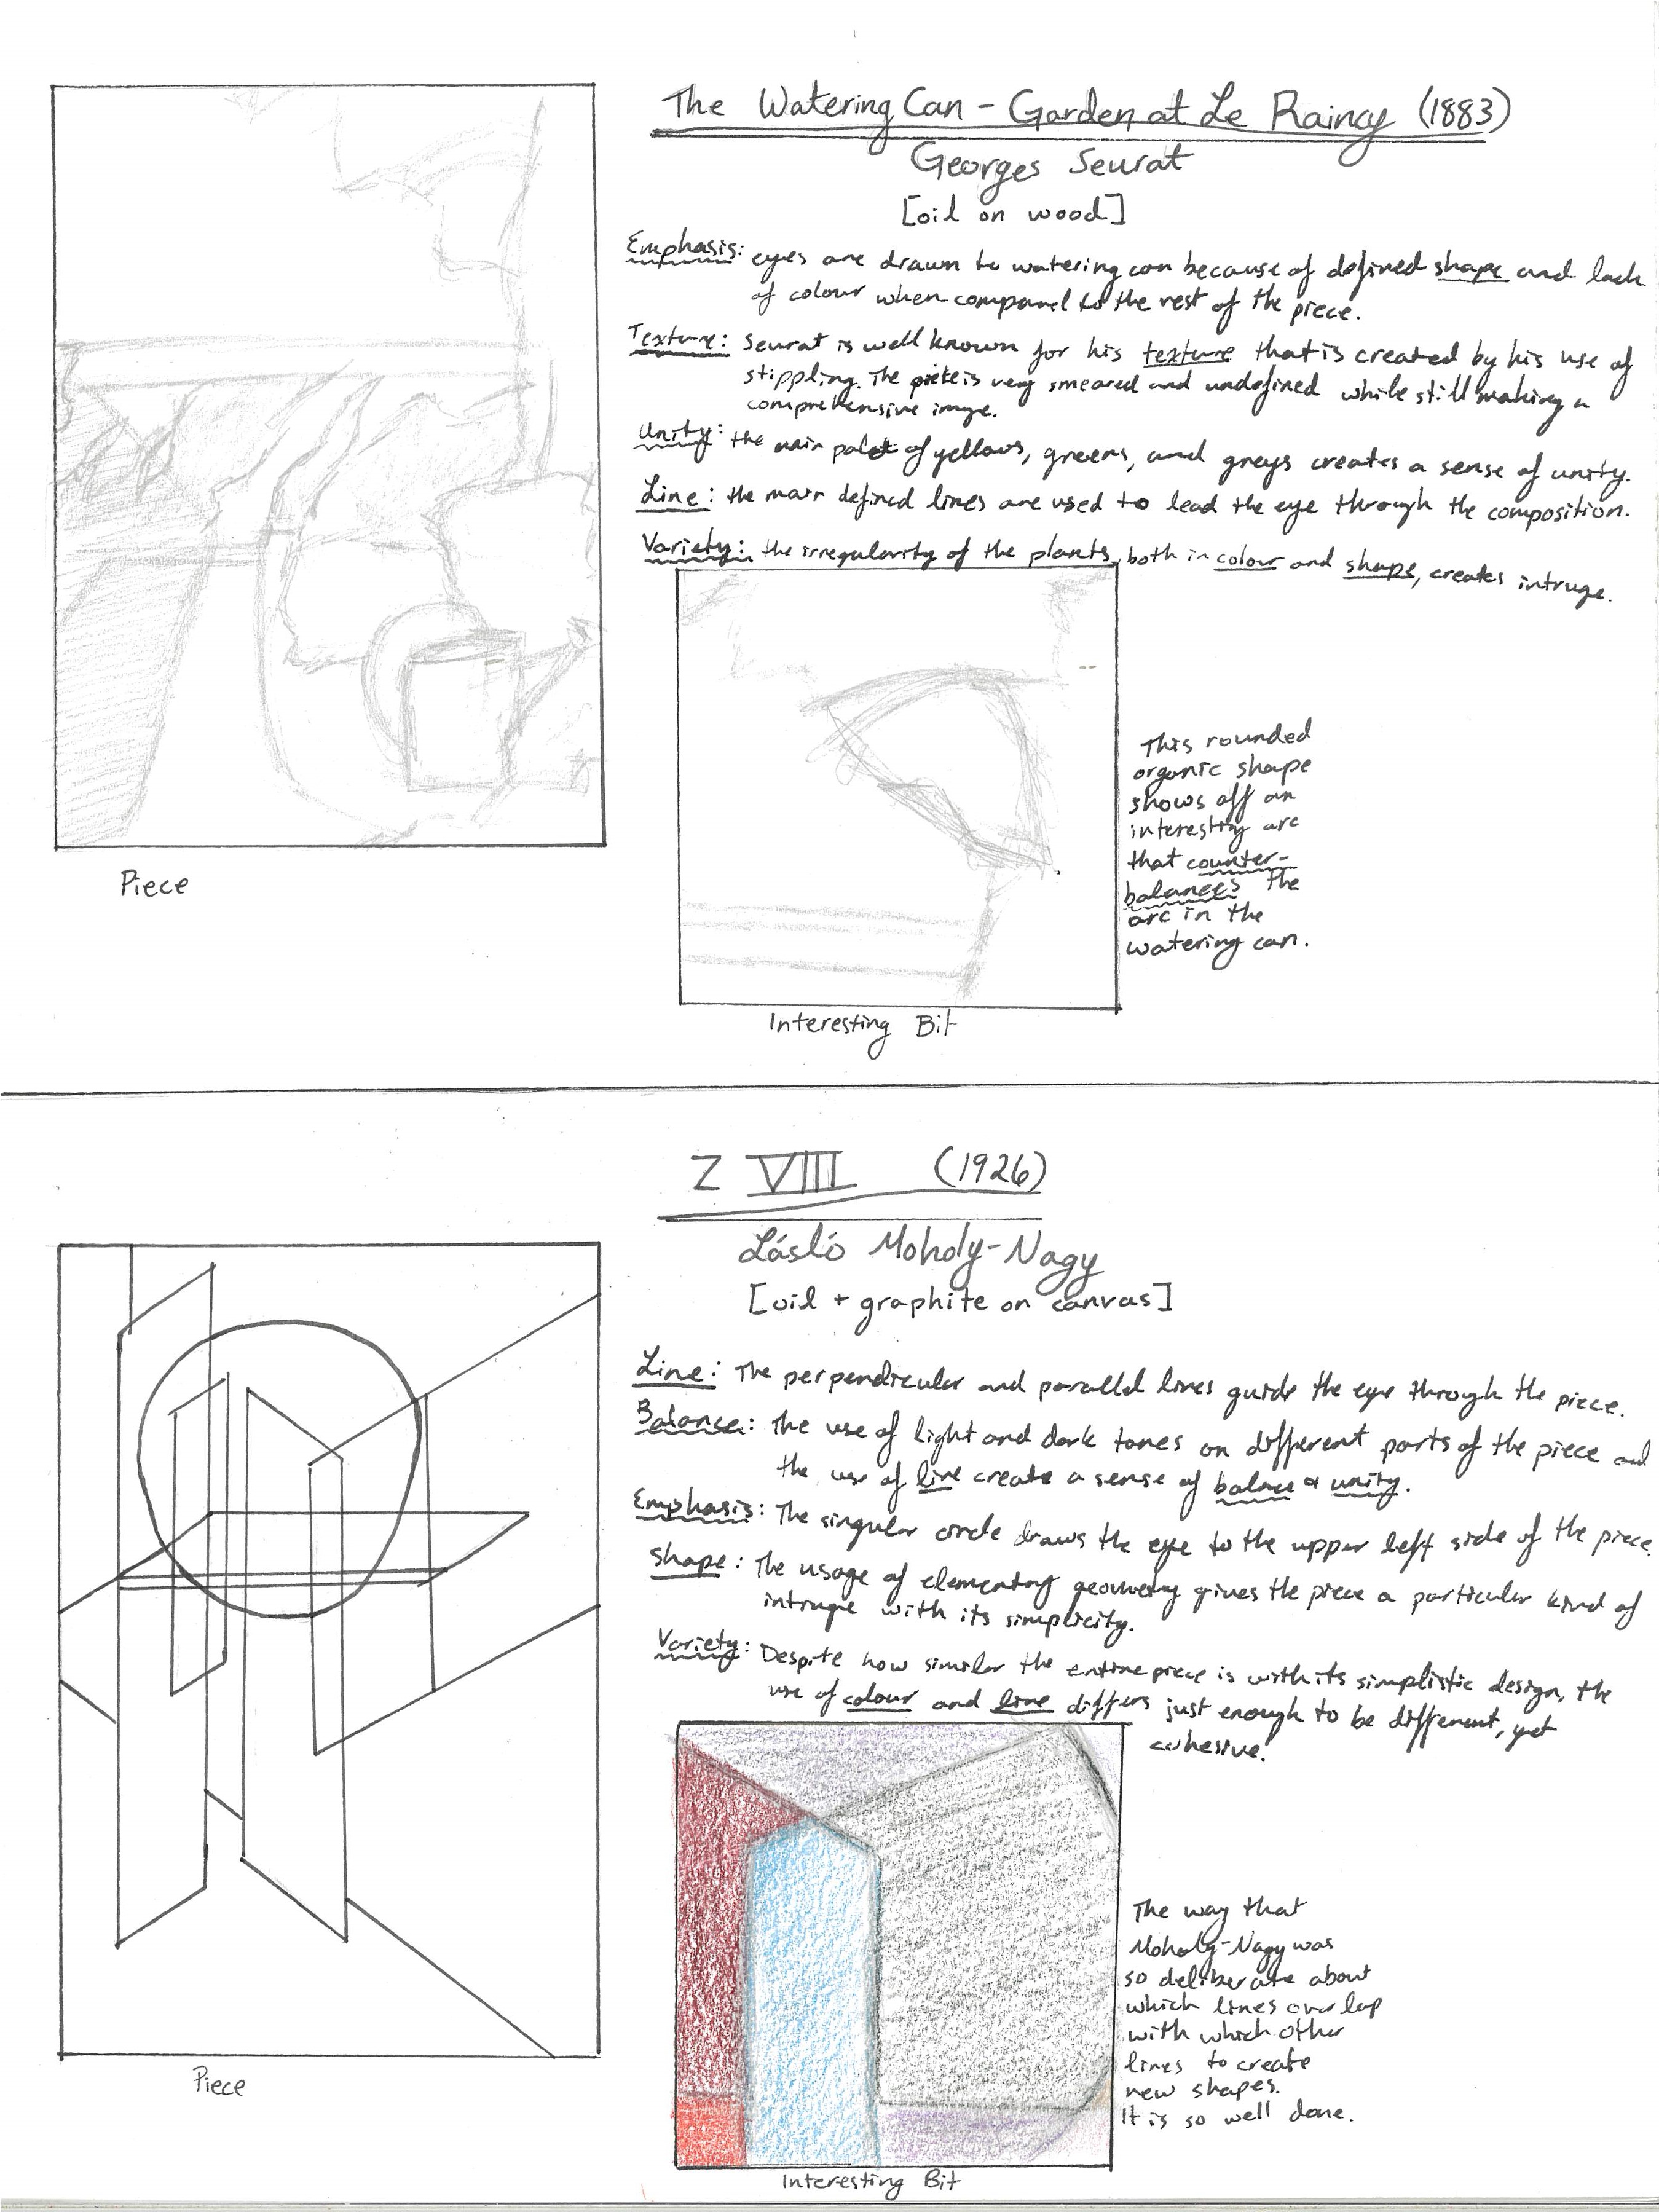 The Watering Can - Garden at Le Raincy (1883)
Georges Seurat
[oil on wood]
Emphasis: eyes are drawn to watering can because of defined shape and lack
of colour when compared to the rest of the piece.
Texture: Seurat is well known for his texture that is created by his use of
stippling. The piece is very smeared and undefined while still making a
comprehensive image.
Unity: the main palet of yellows, greens, and greys creates a sense of unity.
Line: the main defined lines are used to lead the eye through the composition.
Variety: the irregularity of the plants, both in colour and shape, creates intruge.
Piece
This rounded
organic shape
shows off an
interesting arc
that counter-
balances the
arc in the
watering can.
Interesting Bit
Z VIII (1926)
László Moholy-Nagy
[oil + graphite on canvas]
Line: The perpendicular and parallel lines guide the eye through the piece.
Balance: The use of light and dark tones on different parts of the piece and
the use of line create a sense of balance & unity.
Emphasis: The singular circle draws the eye to the upper left side of the piece.
Shape: The usage of elementary geometry gives the piece a particular kind of
intruge with its simplicity.
Variety: Despite how similar the entire piece is with its simplistic design, the
use of colour and line differs just enough to be different, yet
cohesive.
Piece
The way that
Moholy-Nagy was
so deliberate about
which lines overlap
with which other
lines to create
new shapes.
It is so well done.
Interesting Bit